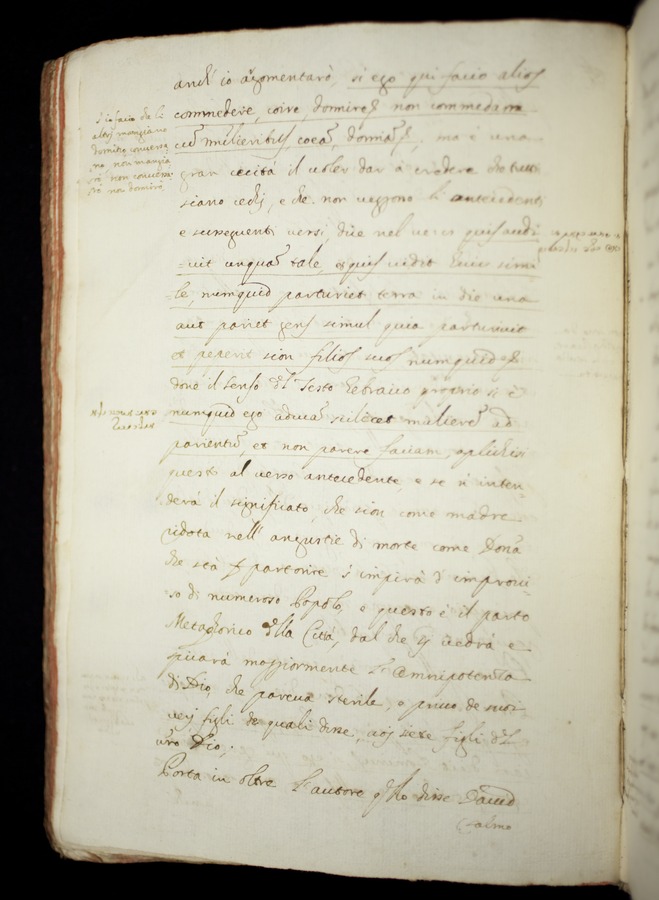 anch' io argomentarò, si ego qui facio alios
commedere, coire, dormire non commedam
cũ mulieribus coeã, dormiã, ma è una
gran cecità il voler dar à credere che tutti
siano ciechi, e che non veggono li antecedenti
e susseguenti versi, dice nel verso quis audi
=vit unquã tale, et quis vidit huic simi=
le, numquid parturiet terra in die una
aut pariet gens simul quia parturivit
et peperit sion filios suos numquid
dono il senso del Testo Hebraico proprio si è
numquid ego aducã scilicet mulierẽ ad
parientũ, et non parere faciam, aplichisi
questo al verso antecedente, e se n' inten=
derà il significato, che sion come madre
ridota nell' angustie di morte come Dona
che stà partorire s' impirà d' improvi=
so di numeroso Popolo, e questo è il parto
Metaforico della Città, dal che si vedrà e
spicarà maggiormente l' omnipotenza
di Dio, che pareva sterile, o privo de suoi
figli de quali disse, voi siete figli del
vro Dio;
Porta in oltre l' autore disse David
salmo
S' io facio che li
altri mangiano
dormino
no non mangia
rò non
rò non dormirò